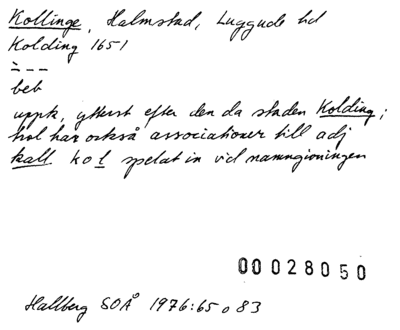 Kollinge, Halmstad, Luggude hd
Kolding 1651
beb
uppk, ytterst efter den da staden Kolding;
hol har också associationer till adj
kall kol spelat in vid namngivningen
00028050
Hallberg SOÅ 1976:65 o 83